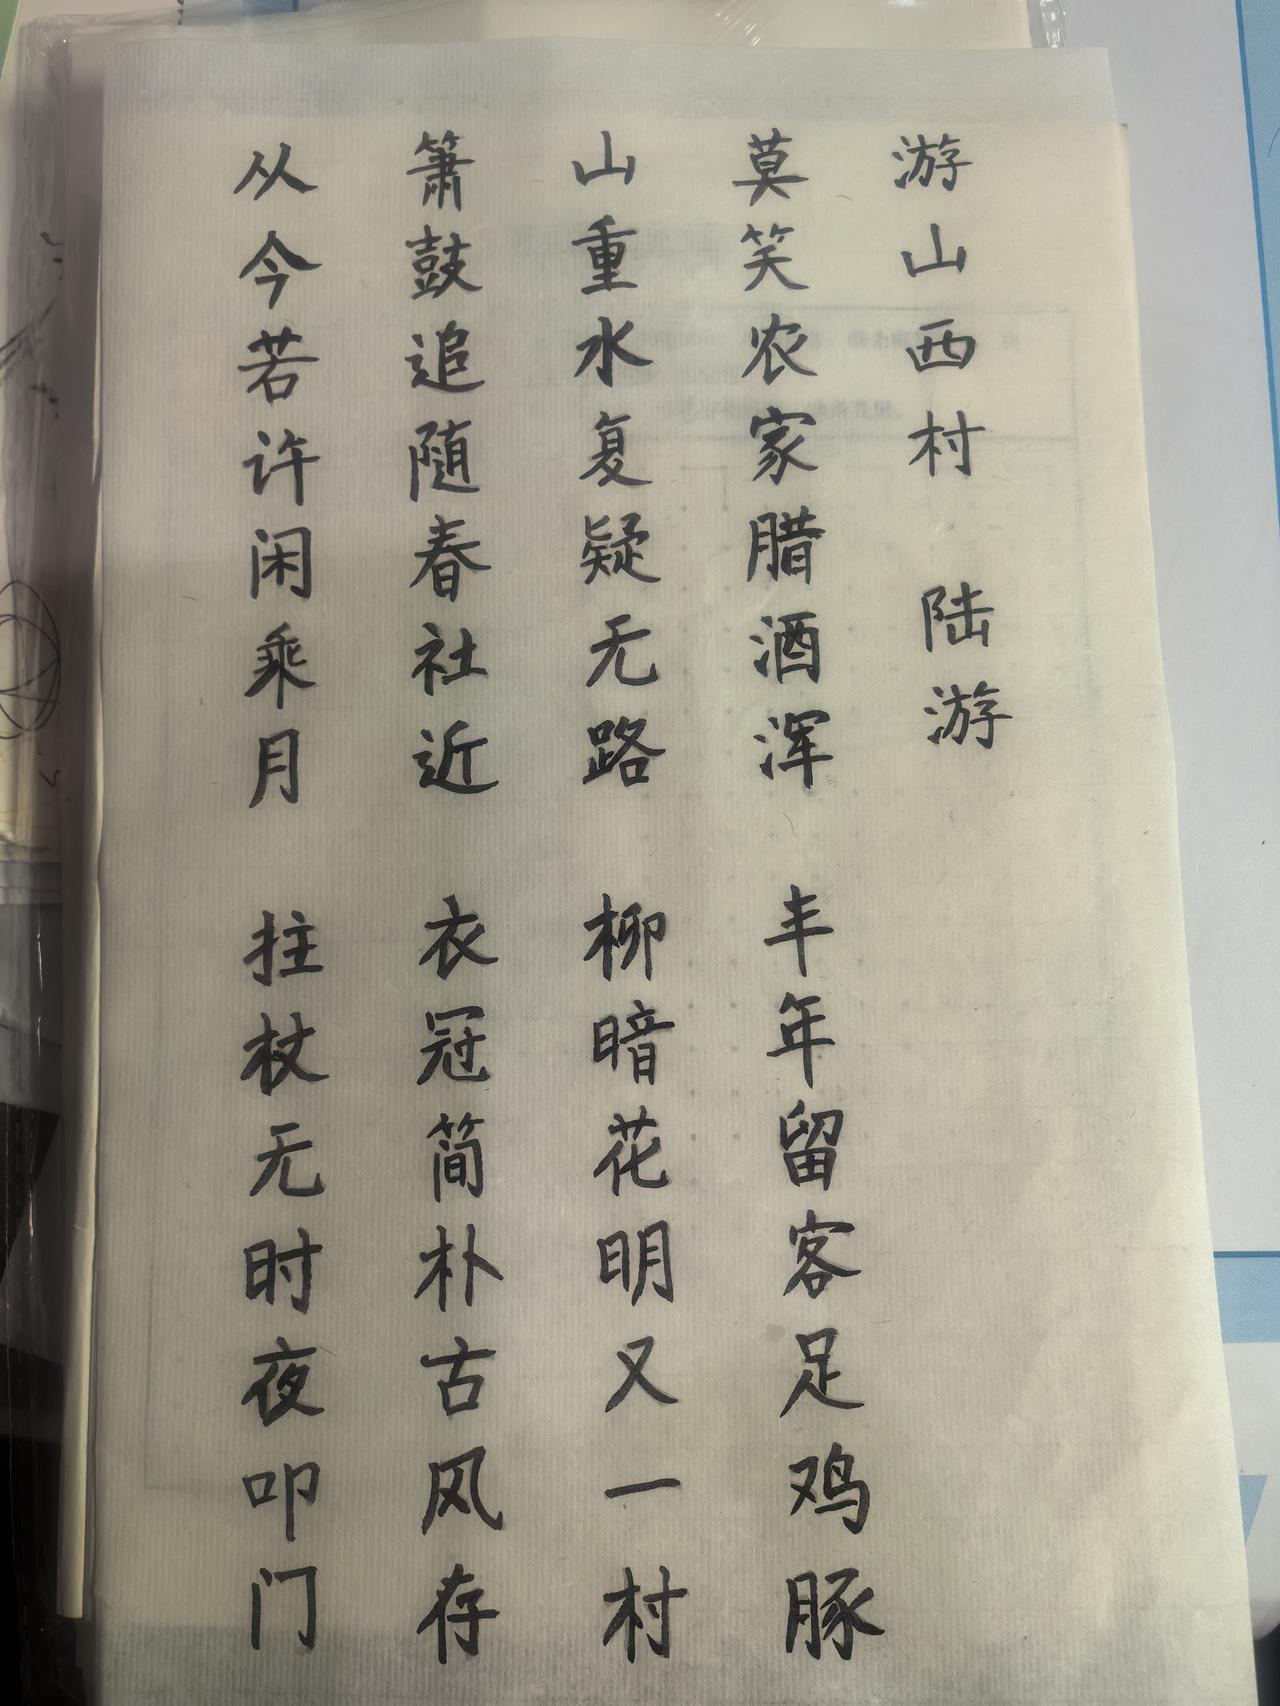 游山西村 陆游
莫笑农家腊酒浑 丰年留客足鸡豚
山重水复疑无路 柳暗花明又一村
箫鼓追随春社近 衣冠简朴古风存
从今若许闲乘月 拄杖无时夜叩门